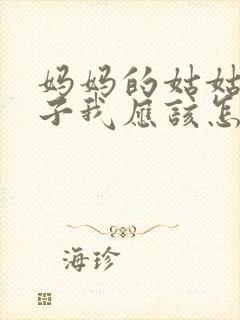 妈妈的姑姑
子我应该怎
海珍